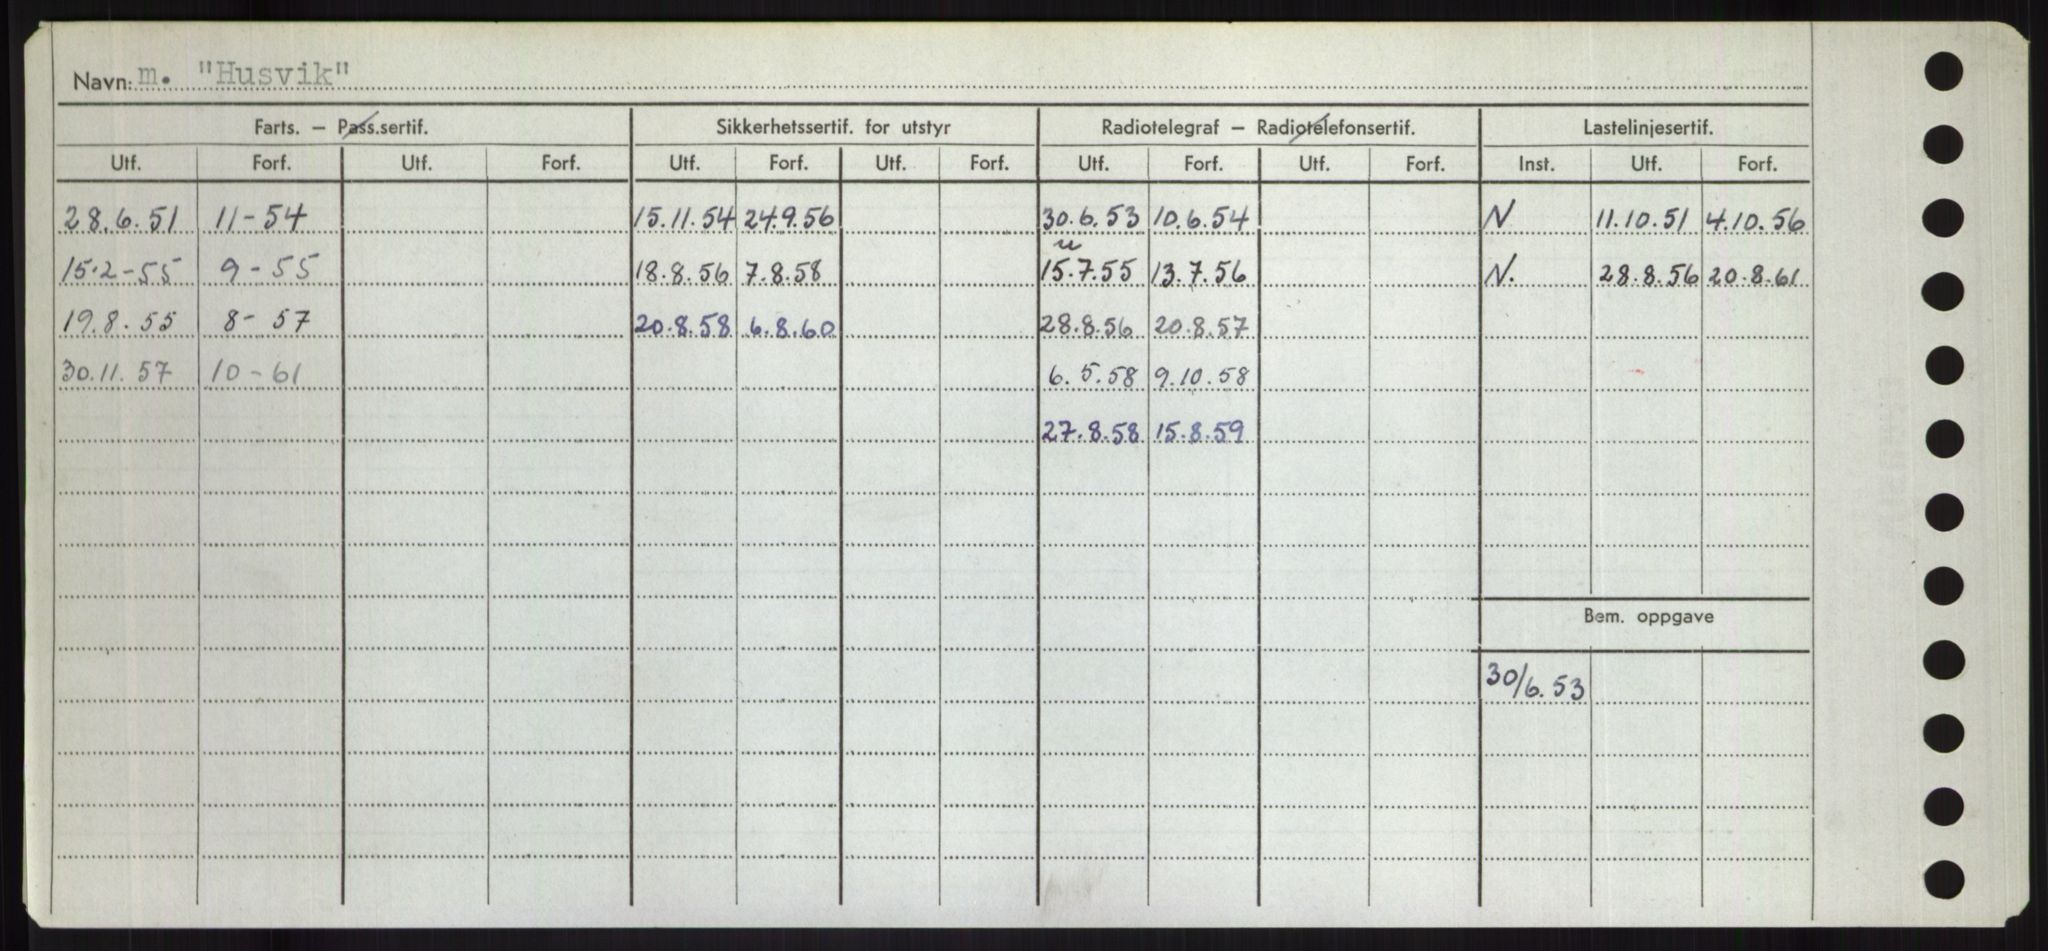 Navn: m. "Husvik"
Farts. – Pass.sertif. Sikkerhetssertif. for utstyr Radiotelegraf – Radiotelefonsertif. Lastelinjesertif.
Utf. Forf. Utf. Forf. Utf. Forf. Utf. Forf. Utf. Forf. Utf. Forf. Inst. Utf. Forf.
28.6.51 11-54 15.11.54 24.9.56 30.6.53 10.6.54 N 11.10.51 4.10.56
15.2-55 9-55 18.8.56 7.8.58 15.7.55 13.7.56 N. 28.8.56 20.8.61
19.8.55 8-57 20.8.58 6.8.60 28.8.56 20.8.57
30.11.57 10-61 6.5.58 9.10.58
27.8.58 15.8.59
Bem. oppgave
30/6.53